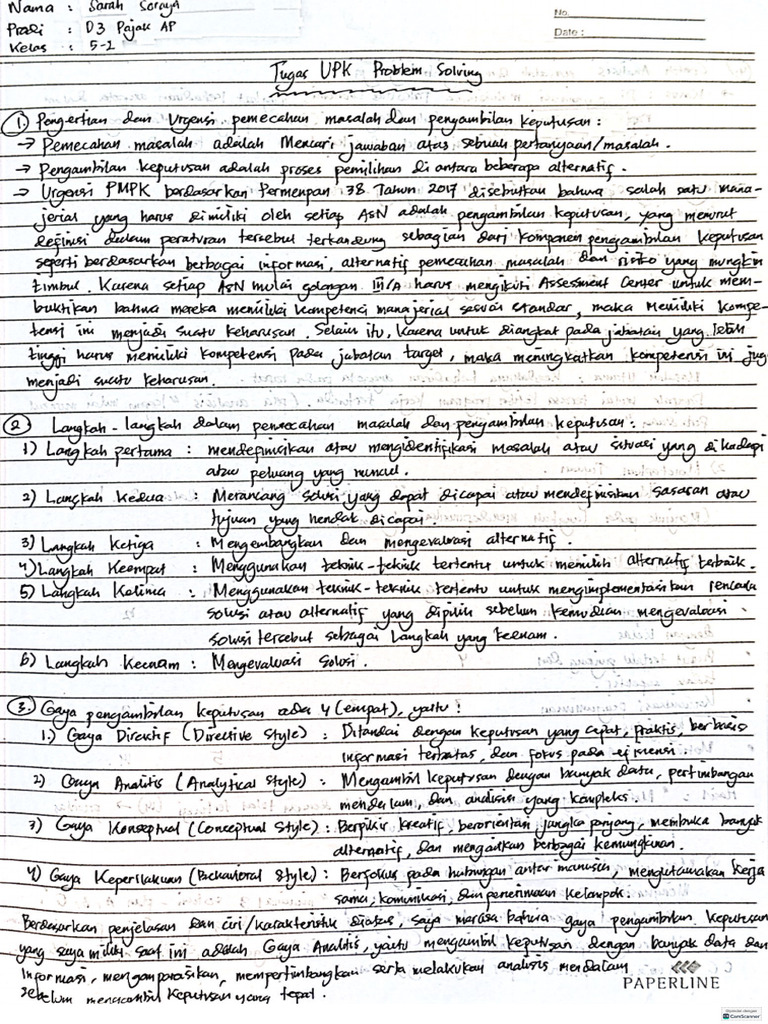 Nama : Sarah Soraya
Prodi : D3 Pajak AP
Kelas : 5-1
No.
Date :
Tugas UPK Problem Solving
1. Pengertian dan Urgensi pemecahan masalah dan pengambilan keputusan :
→ Pemecahan masalah adalah Mencari jawaban atas sebuah pertanyaan/masalah.
→ Pengambilan keputusan adalah proses pemilihan di antara beberapa alternatif.
→ Urgensi PMPK berdasarkan Permenpan 38 Tahun 2017 disebutkan bahwa salah satu mana-
jerial yang harus dimiliki oleh setiap ASN adalah pengambilan keputusan, yang menurut
definisi dalam peraturan tersebut terkandung sebagian dari komponen pengambilan keputusan
seperti berdasarkan berbagai informasi, alternatif pemecahan masalah dan risiko yang mungkin
timbul. Karena setiap ASN mulai golongan III/A harus mengikuti Assessment Center untuk mem-
buktikan bahwa mereka memiliki kompetensi manajerial sesuai standar, maka Memiliki kompe-
tensi ini menjadi suatu keharusan. Selain itu, karena untuk diangkat pada jabatan yang lebih
tinggi harus memiliki kompetensi pada jabatan target, maka meningkatkan kompetensi ini jug
menjadi suatu keharusan.
2. Langkah-langkah dalam pemecahan masalah dan pengambilan keputusan :
1) Langkah pertama : mendefinisikan atau mengidentifikasi masalah atau situasi yang dihadapi
atau peluang yang muncul.
2) Langkah Kedua : Merancang solusi yang dapat dicapai atau mendefinisikan sasaran atau
tujuan yang hendak dicapai.
3) Langkah Ketiga : Mengembangkan dan mengevaluasi alternatif.
4) Langkah Keempat : Menggunakan teknik-teknik tertentu untuk memilih alternatif terbaik.
5) Langkah Kelima : Menggunakan teknik-teknik tertentu untuk mengimplementasikan rencana
solusi atau alternatif yang dipilih sebelum kemudian mengevaluasi
solusi tersebut sebagai Langkah yang keenam.
6) Langkah Keenam : Mengevaluasi Solusi.
3. Gaya pengambilan keputusan ada 4 (empat), yaitu :
1.) Gaya Direktif (Directive Style) : Ditandai dengan keputusan yang cepat, praktis, berbasis
informasi terbatas, dan fokus pada efisiensi.
2) Gaya Analitis (Analytical Style) : Mengambil keputusan dengan banyak data, pertimbangan
mendalam, dan analisis yang kompleks.
3) Gaya Konseptual (Conceptual Style) : Berpikir kreatif, berorientasi jangka panjang, membuka banyak
alternatif, dan mengaitkan berbagai kemungkinan.
4) Gaya Keperilakuan (Behavioral Style) : Berfokus pada hubungan antar manusia, mengutamakan kerja
sama, komunikasi, dan penerimaan kelompok.
Berdasarkan penjelasan dan ciri/karakteristik diatas, saya merasa bahwa gaya pengambilan keputusan
yang saya miliki saat ini adalah Gaya Analitis, yaitu mengambil keputusan dengan banyak data dan
informasi, mengomparasikan, mempertimbangkan serta melakukan analisis mendalam
sebelum mengambil keputusan yang tepat.
PAPERLINE
CamScanner